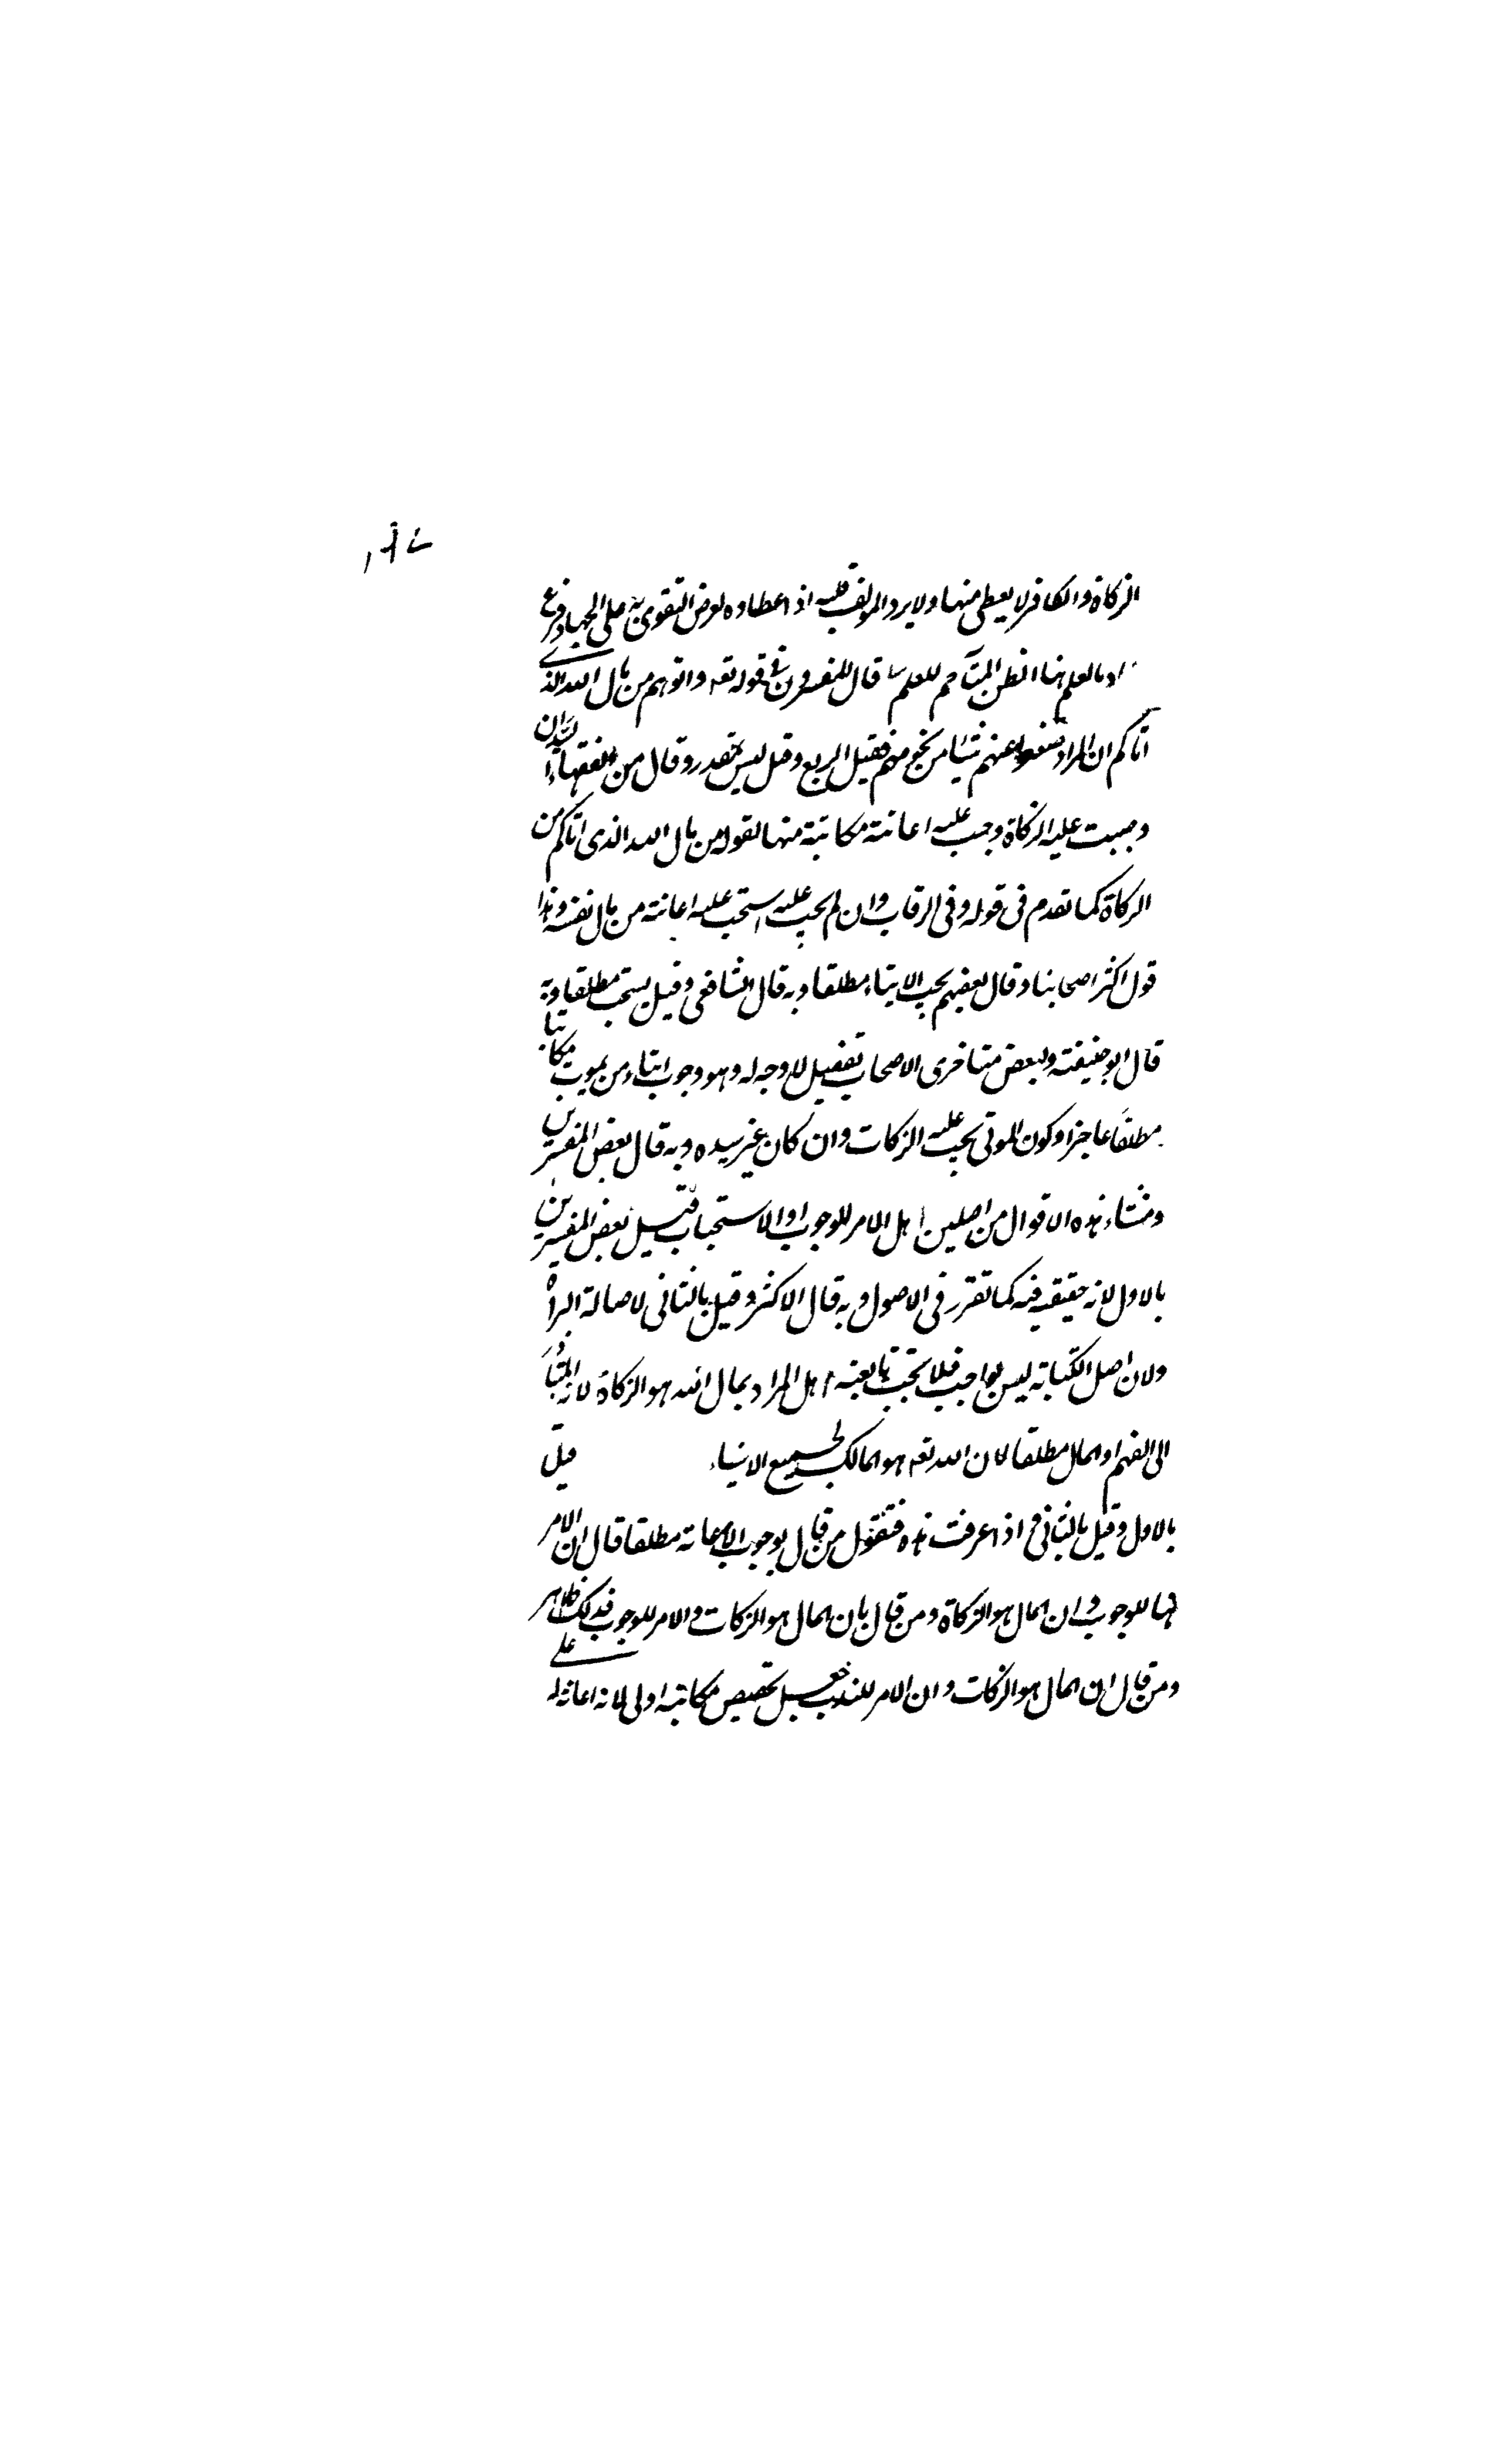 الزكاة والكافر لا يعطى منها ولا يرد المؤلف قلبه اذ اعطاوه لغرض التقوى به على الجهاد وفرع
اد بالعلم هنا الظن المتاخم للعلم قال المفسرون في قوله تعه واتوهم من مال الله الذى
اتاكم ان المراد ضعوا عنهم شيئا من نجومهم فقيل الربع وقيل ليس بمقدر وقال من الفقهاء ان
وجبت عليه الزكاة وجب عليه اعانة مكاتبة منها لقوله من مال الله الذى اتاكم من
الزكاة كما تقدم فى قوله وفى الرقاب وان لم يجب عليه استحب عليه اعانته من مال نفسه وهذا
قول اكثر اصحابنا وقال بعضهم يجب الايتاء مطلقا وبه قال الشافعى وقيل يستحب مطلقا وبه
قال ابو حنيفة ولبعض متاخرى الاصحاب تفصيل لا وجه له وهو وجوب ايتاء من يموت مكاتبا
مطلقا عاجزا وكون الموتى يجب عليه الزكات وان كان غير سيده وبه قال بعض المفسرين
ومنشاء هذه الاقوال من اصلين ا هل الامر للوجوب او الاستحباب قيل بعض المفسرين
بالاول لانه حقيقية فيه كما تقرر فى الاصول وبه قال الاكثر وقيل بالثانى لاصالة البراة
ولان اصل الكتابة ليس بواجب فلا تجب تابعيته ا هل المراد بمال الله هو الزكاة لانه المتبادر
الى الفهم او المال مطلقا لان الله تعه هو المالك لجميع الاشياء قيل
بالاول وقيل بالثانى اذا عرفت هذه فنقول من قال بوجوب الاعانة مطلقا قال ان الامر
هنا للوجوب وان المال هو الزكاة ومن قال بان المال هو الزكات والامر للوجوب فذلك ظاهر
ومن قال ان المال هو الزكات وان الامر للندب جعل تخصيص مكاتبه اولى لانه اعانة له على